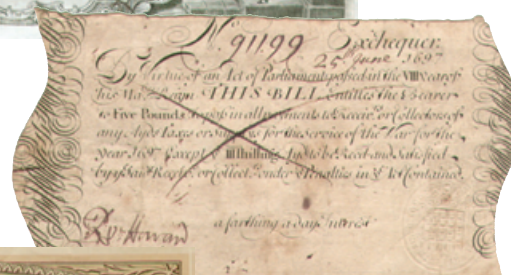 N. 91199 Exchequer
25 June 1697
By Virtue of an Act of Parliament passed in the VIII Year of
his Ma Reign THIS BILL Entitles the Bearer
to Five Pounds to pass in all payments to Receiv. or Collectors of
any Ayds Taxes or for the service of the War for the
year 1697 Except IIIIshilling Ayd to be Recd and Satisfied
by Said Recr or Collect. under Penalties in Act Contained.
a farthing a day Interest
R Howard